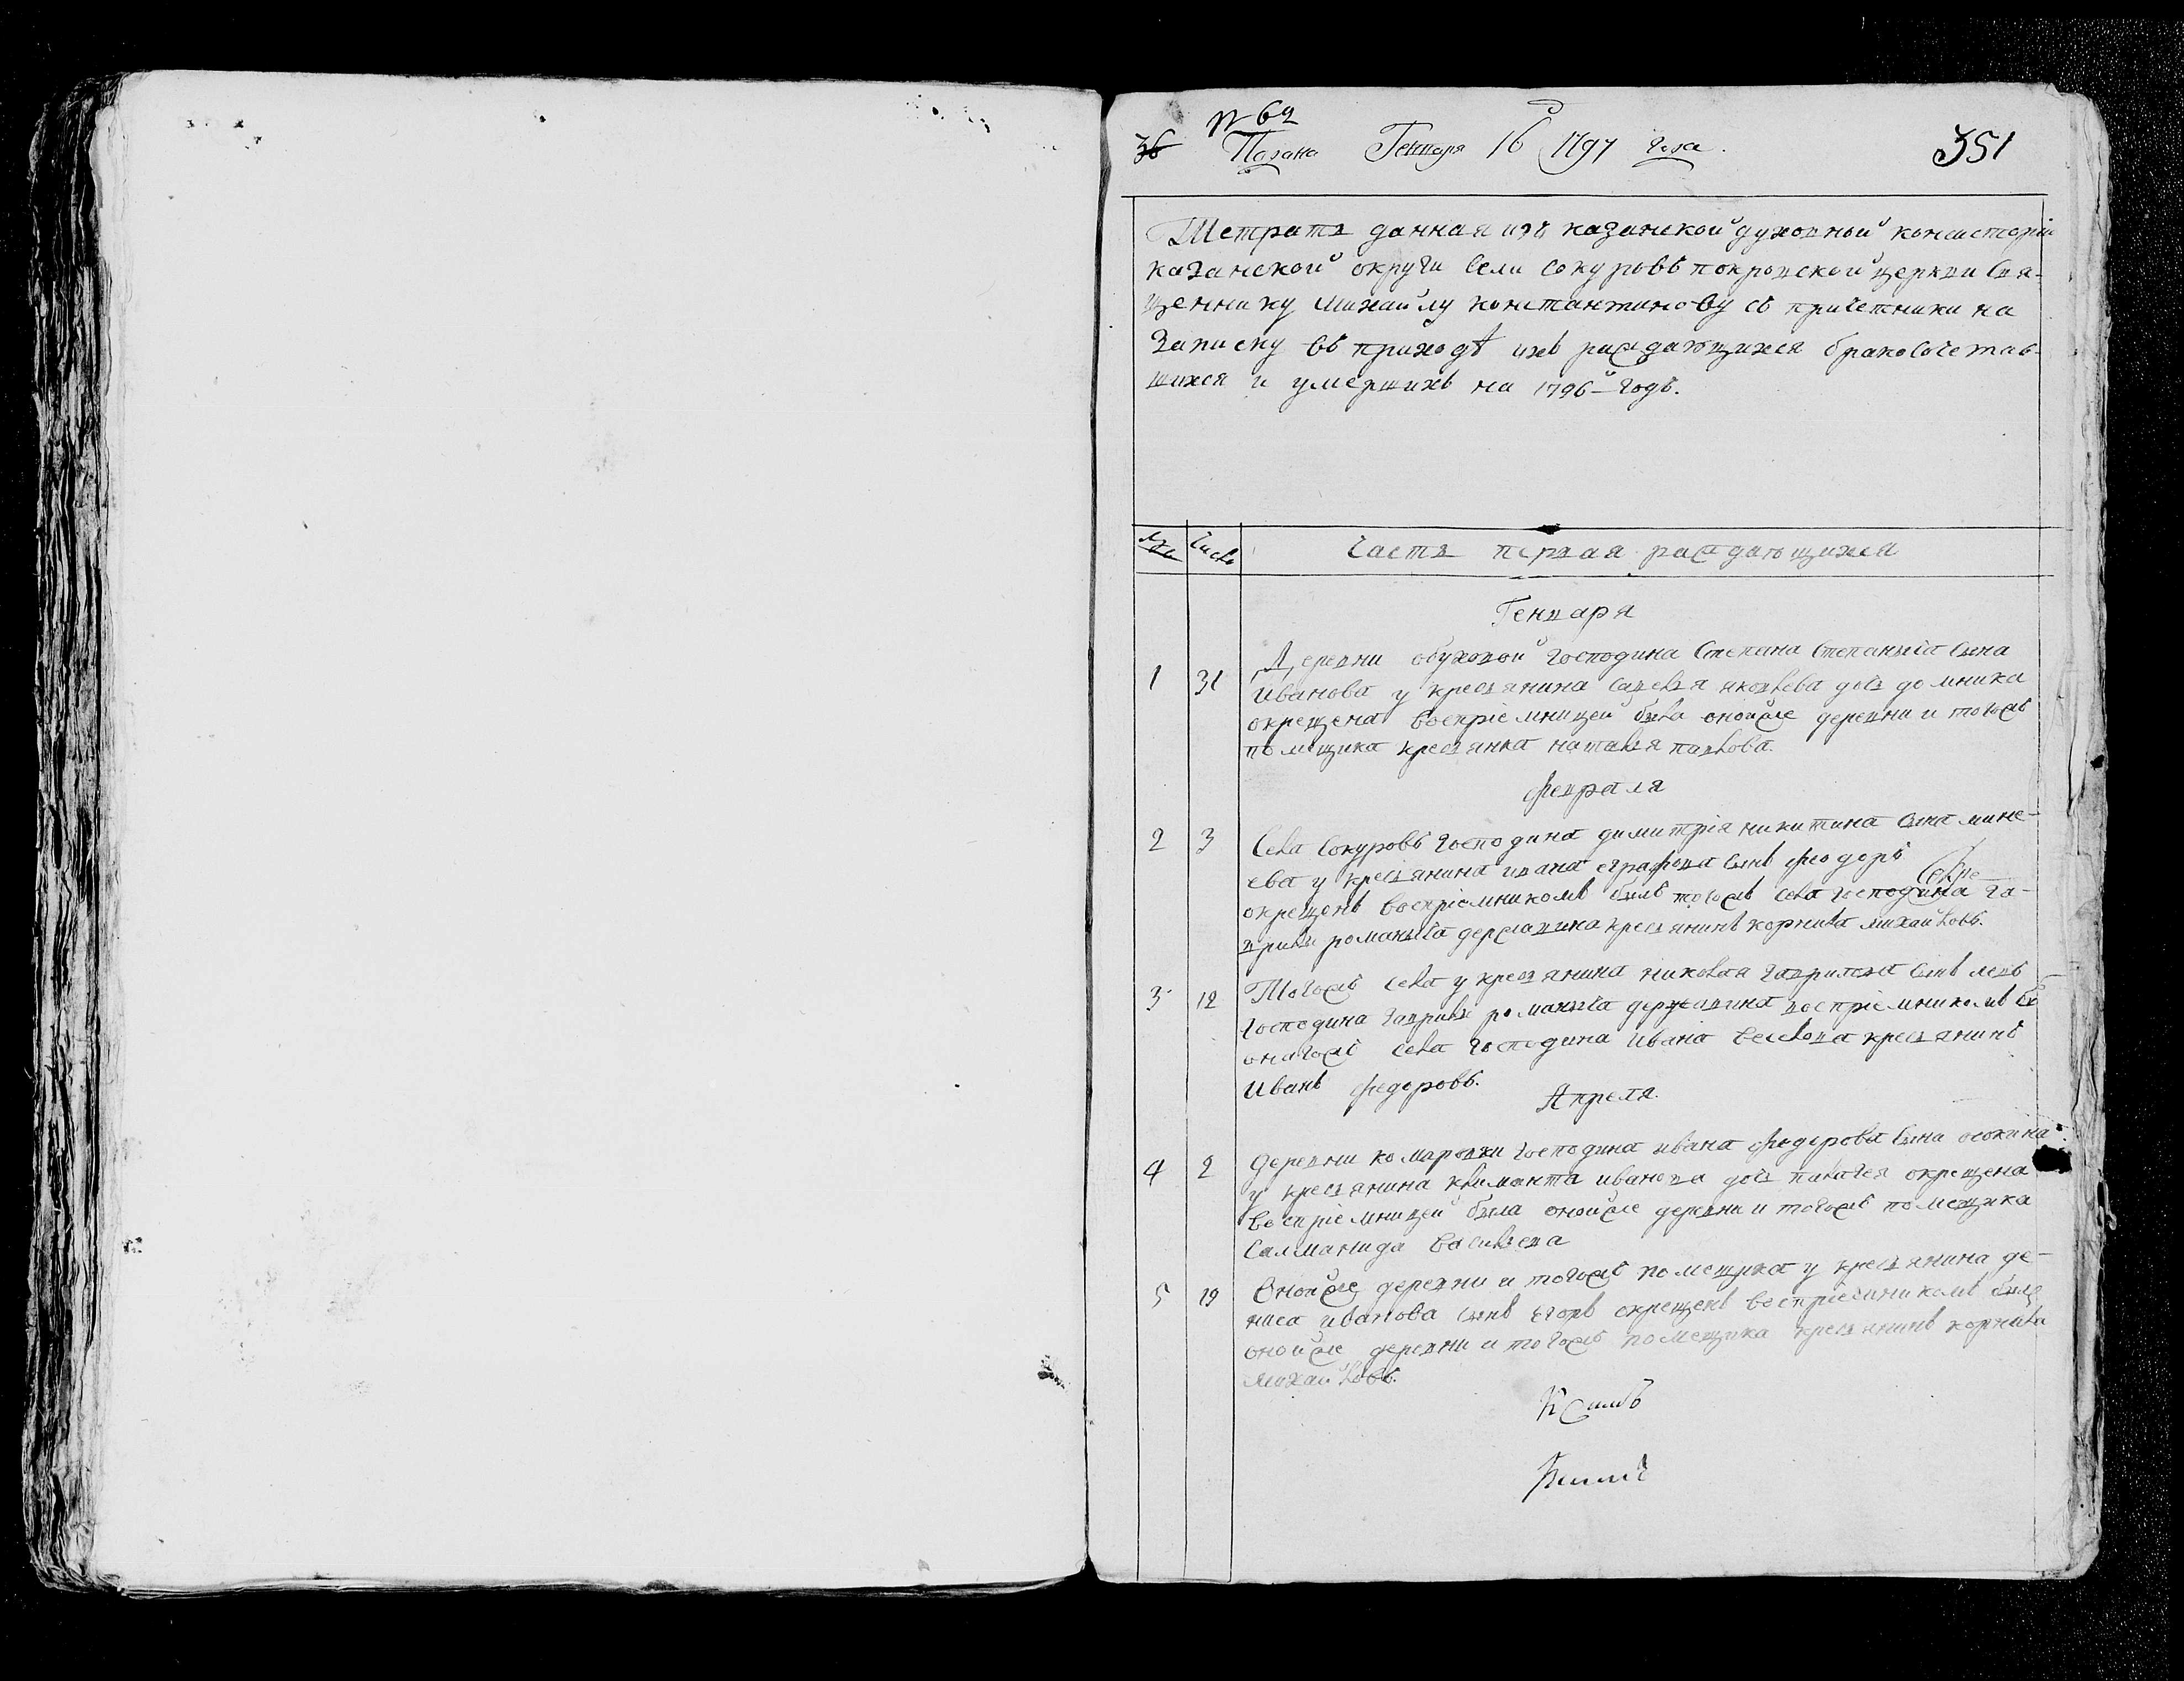 № 62
36 Подана Генваря 16 д 1797 года. 351
Тетрать данная изъ казанской духовной консисторіи
казанской округи села сокуровъ покровской церкви свя-
щеннику михайлу константинову съ причетники на
записку въ приходѣ ихъ раждающихся бракосочетав-
шихся и умершихъ на 1796 й годъ.
№ Число Часть первая раждающихся
Генваря
1 31 Деревни обуховой господина Степана Степаныча сына
Иванова у крестьянина савелья яковлева дочь домника
окрещена воспріемницей была онойже деревни и тогожъ
помѣщика крестьянка наталья павлова.
февраля
2 3 Села Сокуровъ господина димитрія никитина сына мине-
ева у крестьянина ивана евграфова сынъ феодоръ
окрещенъ воспріемникомъ былъ тогожъ села господина га-
врилы романыча державина крестьянинъ корнила михайловъ.
3 12 Тогожъ села у крестьянина николая гаврилова сынъ левъ
господина гаврилы романыча державина воспріемникомъ бы
онагожъ села господина Ивана веселова крестьянинъ
Иванъ федоровъ.
Апреля.
4 2 деревни комаровки господина ивана федорова сына осокина
у крестьянина климонта иванова дочь палагея окрещена
воспріемницей была онойже деревни и тогожъ помещика
саломанида васильева
5 19 Онойже деревни и тогожъ помещика у крестьянина де-
ниса иванова сынъ егоръ окрещенъ воспріемникомъ былъ
онойже деревни и тогожъ помещика крестьянинъ корнила
михайловъ.